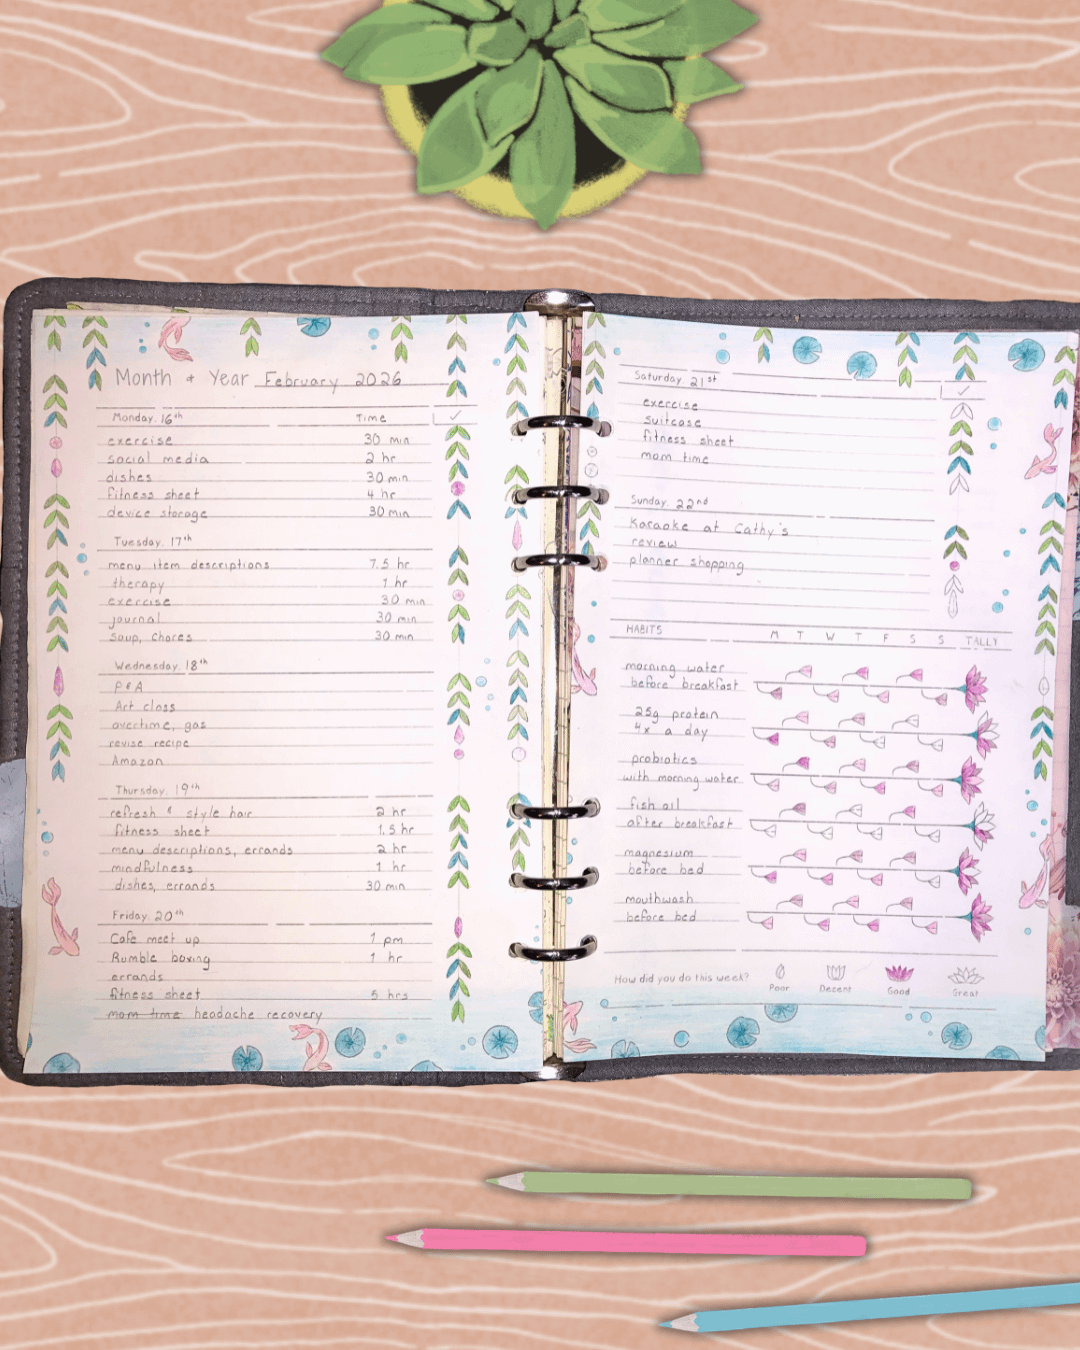 Month & Year February 2026
Monday. 16th Time ✓
exercise 30 min
social media 2 hr
dishes 30 min
fitness sheet 4 hr
device storage 30 min
Tuesday. 17th
menu item descriptions 7.5 hr
therapy 1 hr
exercise 30 min
journal 30 min
soup, chores 30 min
Wednesday. 18th
P&A
Art class
overtime, gas
revise recipe
Amazon
Thursday. 19th
refresh & style hair 2 hr
fitness sheet 1.5 hr
menu descriptions, errands 2 hr
mindfulness 1 hr
dishes, errands 30 min
Friday. 20th
Cafe meet up 1 pm
Rumble boxing 1 hr
errands
fitness sheet 5 hrs
mom time headache recovery
Saturday. 21st ✓
exercise
suitcase
fitness sheet
mom time
Sunday. 22nd
Karaoke at Cathy's
review
planner shopping
HABITS M T W T F S S TALLY
morning water
before breakfast
25g protein
4x a day
probiotics
with morning water
fish oil
after breakfast
magnesium
before bed
mouthwash
before bed
How did you do this week? Poor Decent Good Great